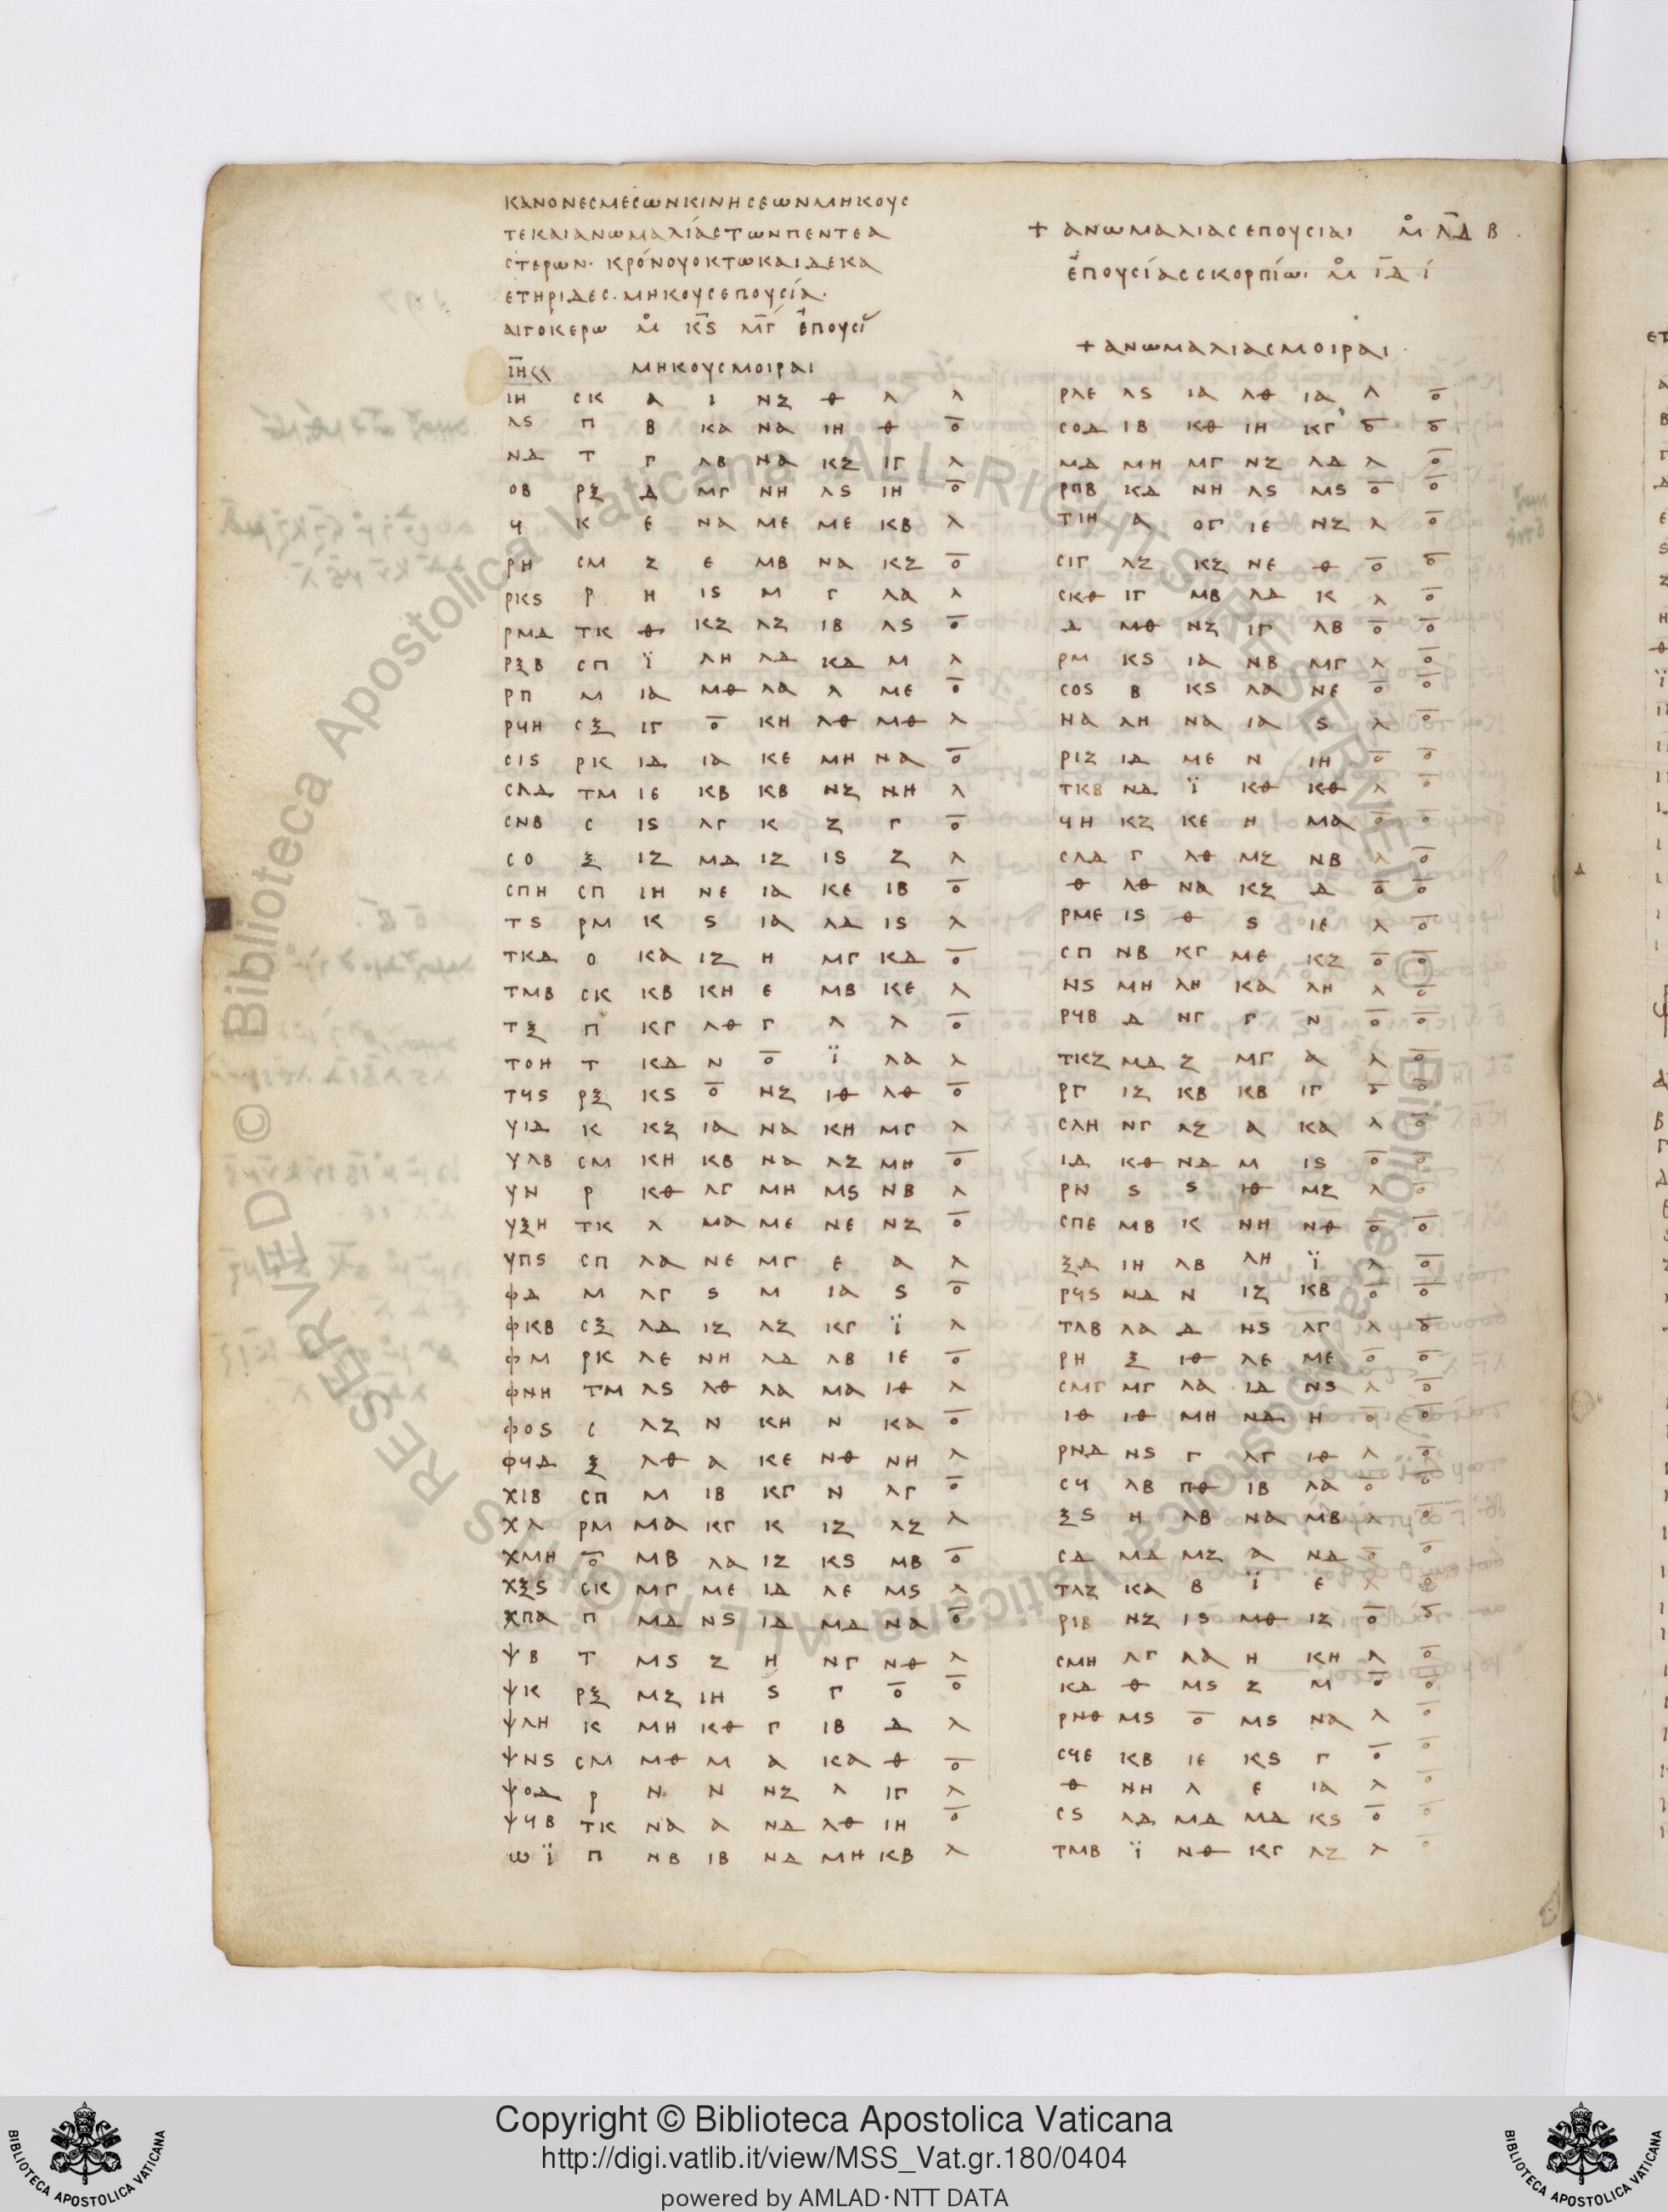 ΚΑΝΟΝΕCΜΕCωΝΚΙΝΗCΕωΝΜΗΚΟΥC
ΤΕΚΑΙΑΝωΜΑΛΙΑCΤωΝΠΕΝΤΕΑ
CΤΕΡωΝ· ΚΡΟΝΟΥΟΚΤωΚΑΙΔΕΚΑ
ΕΤΗΡΙΔΕC· ΜΗΚΟΥCΕΠΟΥCΙΑ·
ΑΙΓΟΚΕΡω Μ° Κϛ ΜΓ ΕΠΟΥCΙ
ΙΗ ΜΗΚΟΥCΜΟΙΡΑΙ
ΙΗ CΚ Α Ι ΝΖ Θ Λ Λ
Λϛ Π Β ΚΑ ΝΑ ΙΗ Θ ο̅
ΝΔ Τ Γ ΛΒ ΝΑ ΚΖ ΙΓ Λ
ΟΒ ΡΞ Δ ΜΓ ΝΗ Λϛ ΙΗ ο̅
Ϥ Κ Ε ΝΑ ΜΕ ΜΕ ΚΒ Λ
ΡΗ CΜ Ζ Ε ΜΒ ΝΑ ΚΖ ο̅
ΡΚϛ Ρ Η Ιϛ Μ Γ ΛΑ Λ
ΡΜΔ ΤΚ Θ ΚΖ ΛΖ ΙΒ Λϛ ο̅
ΡΞΒ CΠ Ϊ ΛΗ ΛΔ ΚΔ Μ Λ
ΡΠ Μ ΙΑ ΜΘ ΛΑ Λ ΜΕ ο̅
ΡϤΗ CΞ ΙΓ ο̅ ΚΗ ΛΘ ΜΘ Λ
CΙϛ ΡΚ ΙΔ ΙΑ ΚΕ ΜΗ ΝΑ ο̅
CΛΔ ΤΜ ΙΕ ΚΒ ΚΒ ΝΖ ΝΗ Λ
CΝΒ C Ιϛ ΛΓ Κ Ζ Γ ο̅
CΟ Ξ ΙΖ ΜΔ ΙΖ Ιϛ Ζ Λ
CΠΗ CΠ ΙΗ ΝΕ ΙΑ ΚΕ ΙΒ ο̅
Τϛ ΡΜ Κ ϛ ΙΑ ΛΔ Ιϛ Λ
ΤΚΔ Ο ΚΑ ΙΖ Η ΜΓ ΚΔ ο̅
ΤΜΒ CΚ ΚΒ ΚΗ Ε ΜΒ ΚΕ Λ
ΤΞ Π ΚΓ ΛΘ Γ Λ Λ ο̅
ΤΟΗ Τ ΚΔ Ν ο̅ Ϊ ΛΑ Λ
ΤϤϛ ΡΞ Κϛ ο̅ ΝΖ ΙΘ ΛΘ ο̅
ΥΙΔ Κ ΚΖ ΙΑ ΝΑ ΚΗ ΜΓ Λ
ΥΛΒ CΜ ΚΗ ΚΒ ΝΑ ΛΖ ΜΗ ο̅
ΥΝ Ρ ΚΘ ΛΓ ΜΗ Μϛ ΝΒ Λ
ΥΞΗ ΤΚ Λ ΜΑ ΜΕ ΝΕ ΝΖ ο̅
ΥΠϛ CΠ ΛΑ ΝΕ ΜΓ Ε Α Λ
ΦΔ Μ ΛΓ ϛ Μ ΙΑ ϛ ο̅
ΦΚΒ CΞ ΛΔ ΙΖ ΛΖ ΚΓ Ϊ Λ
ΦΜ ΡΚ ΛΕ ΝΗ ΛΔ ΛΒ ΙΕ ο̅
ΦΝΗ ΤΜ Λϛ ΛΘ ΛΑ ΜΑ ΙΘ Λ
ΦΟϛ C ΛΖ Ν ΚΗ Ν ΚΑ ο̅
ΦϤΔ Ξ ΛΘ Α ΚΕ ΝΘ ΝΗ Λ
ΧΙΒ CΠ Μ ΙΒ ΚΓ Ν ΛΓ ο̅
ΧΛ ΡΜ ΜΑ ΚΓ Κ ΙΖ ΛΖ Λ
ΧΜΗ ο̅ ΜΒ ΛΑ ΙΖ Κϛ ΜΒ ο̅
ΧΞϛ CΚ ΜΓ ΜΕ ΙΔ ΛΕ Μϛ Λ
ΧΠΑ Π ΜΔ Νϛ ΙΔ ΜΔ ΝΑ ο̅
ΨΒ Τ Μϛ Ζ Η ΝΓ ΝΘ Λ
ΨΚ ΡΞ ΜΖ ΙΗ ϛ Γ ο̅ ο̅
ΨΛΗ Κ ΜΗ ΚΘ Γ ΙΒ Δ Λ
ΨΝϛ CΜ ΜΘ Μ Α ΚΑ Θ ο̅
ΨΟΔ Ρ Ν Ν ΝΖ Λ ΙΓ Λ
ΨϤΒ ΤΚ ΝΑ Α ΝΔ ΛΘ ΙΗ ο̅
ω Ϊ Π ΝΒ ΙΒ ΝΔ ΜΗ ΚΒ Λ
+ ΑΝωΜΑΛΙΑCΕΠΟΥCΙΑΙ Μ° ΛΔ Β
ΕΠΟΥCΙΑCCΚΟΡΠΙωΙ Μ° ΙΔ Ι
+ ΑΝωΜΑΛΙΑCΜΟΙΡΑΙ·
ΡΛΕ Λϛ ΙΑ ΛΘ ΙΑ Λ ο̅
CΟΔ ΙΒ ΚΘ ΙΗ ΚΓ ο̅ ο̅
ΜΔ ΜΗ ΜΓ ΝΖ ΛΔ Λ ο̅
ΡΠΒ ΚΔ ΝΗ Λϛ Μϛ ο̅ ο̅
ΤΙΗ Α ΟΓ ΙΕ ΝΖ Λ ο̅
CΙΓ ΛΖ ΚΖ ΝΕ Θ ο̅ ο̅
CΚΘ ΙΓ ΜΒ ΛΔ Κ Λ ο̅
Δ ΜΘ ΝΖ ΙΓ ΛΒ ο̅ ο̅
ΡΜ Κϛ ΙΑ ΝΒ ΜΓ Λ ο̅
CΟϛ Β Κϛ ΛΑ ΝΕ ο̅ ο̅
ΝΑ ΛΗ ΝΑ ΙΑ ϛ Λ ο̅
ΡΙΖ ΙΔ ΜΕ Ν ΙΗ ο̅ ο̅
ΤΚΒ ΝΔ Ϊ ΚΘ ΚΘ Λ ο̅
ϤΗ ΚΖ ΚΕ Η ΜΑ ο̅ ο̅
CΛΔ Γ ΛΘ ΜΖ ΝΒ Λ ο̅
Θ ΛΘ ΝΑ ΚΖ Δ ο̅ ο̅
ΡΜΕ Ιϛ Θ ϛ ΙΕ Λ ο̅
CΠ ΝΒ ΚΓ ΜΕ ΚΖ ο̅ ο̅
Νϛ ΜΗ ΛΗ ΚΑ ΛΗ Λ ο̅
ΡϤΒ Δ ΝΓ Γ Ν ο̅ ο̅
ΤΚΖ ΜΔ Ζ ΜΓ Α Λ ο̅
ΡΓ ΙΖ ΚΒ ΚΒ ΙΓ ο̅ ο̅
CΛΗ ΝΓ ΛΖ Α ΚΑ Λ ο̅
ΙΔ ΚΘ ΝΔ Μ Ιϛ ο̅ ο̅
ΡΝ ϛ ϛ ΙΘ ΜΖ Λ ο̅
CΠΕ ΜΒ Κ ΝΗ ΝΘ ο̅ ο̅
ΞΔ ΙΗ ΛΒ ΛΗ Ϊ Λ ο̅
ΡϤϛ ΝΔ Ν ΙΖ ΚΒ ο̅ ο̅
ΤΛΒ ΛΑ Δ Νϛ ΛΓ Λ ο̅
ΡΗ Ξ ΙΘ ΛΕ ΜΕ ο̅ ο̅
CΜΓ ΜΓ ΛΑ ΙΔ Νϛ Λ ο̅
ΙΘ ΙΘ ΜΗ ΝΔ Η ο̅ ο̅
ΡΝΔ Νϛ Γ ΛΓ ΙΘ Λ ο̅
CϤ ΛΒ ΠΘ ΙΒ ΛΑ ο̅ ο̅
Ξϛ Η ΛΒ ΝΑ ΜΒ Λ ο̅
CΔ ΜΔ ΜΖ Α ΝΔ ο̅ ο̅
ΤΛΖ ΚΑ Β Ϊ Ε Λ ο̅
ΡΙΒ ΝΖ Ιϛ ΜΘ ΙΖ ο̅ ο̅
CΜΗ ΛΓ ΛΑ Η ΚΗ Λ ο̅
ΚΔ Θ Μϛ Ζ Μ ο̅ ο̅
ΡΝΘ Μϛ ο̅ Μϛ ΝΑ Λ ο̅
CϤΕ ΚΒ ΙΕ Κϛ Γ ο̅ ο̅
Θ ΝΗ Λ Ε ΙΑ Λ ο̅
Cϛ ΛΔ ΜΔ ΜΔ Κϛ ο̅ ο̅
ΤΜΒ Ϊ ΝΘ ΚΓ ΛΖ Λ ο̅
© Biblioteca Apostolica Vaticana ALL RIGHTS RESERVED
© Biblioteca Apostolica Vaticana ALL RIGHTS RESERVED
Copyright © Biblioteca Apostolica Vaticana
http://digi.vatlib.it/view/MSS_Vat.gr.180/0404
powered by AMLAD·NTT DATA
BIBLIOTECA APOSTOLICA VATICANA
BIBLIOTECA APOSTOLICA VATICANA